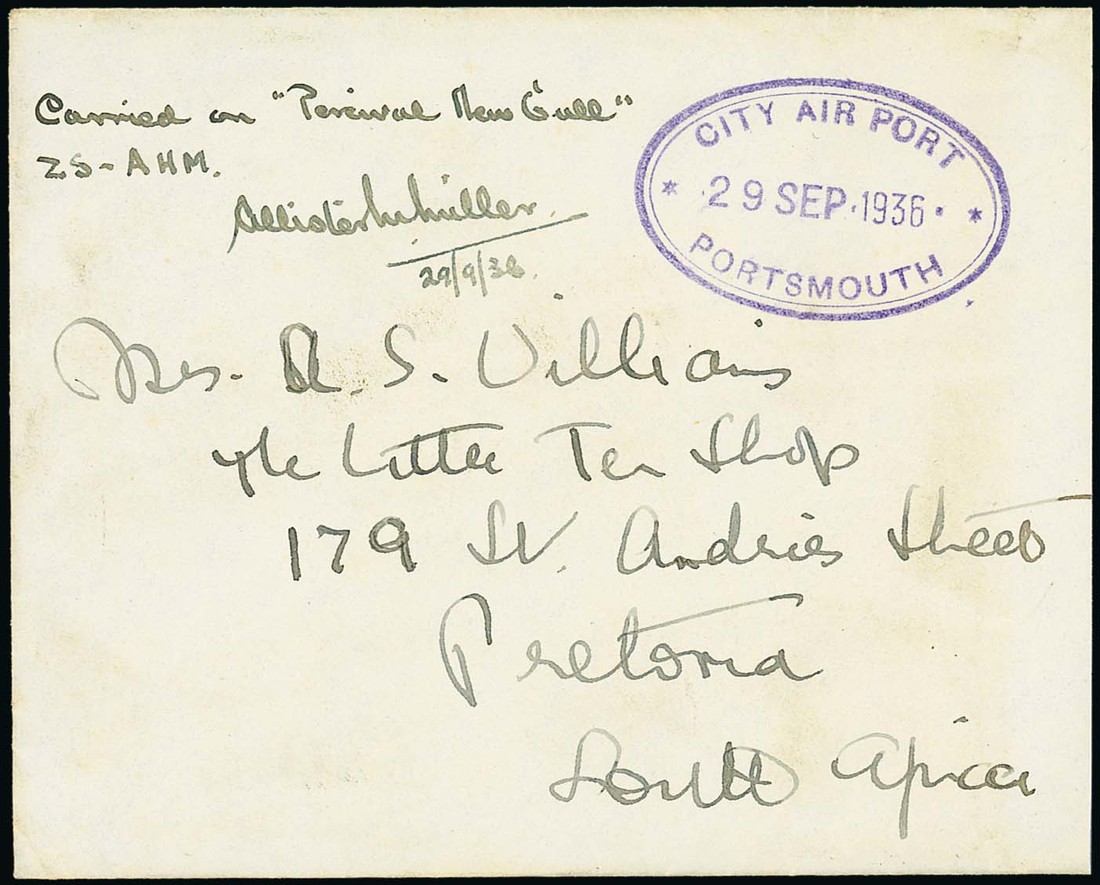 Carried on "Percival Mew Gull"
ZS-AHM.
Allister M Miller
29/9/36.
CITY AIR PORT
* 29 SEP. 1936 · *
PORTSMOUTH
Mrs. R. S. Williams
The Little Tea Shop
179 St. Andries Street
Pretoria
South Africa